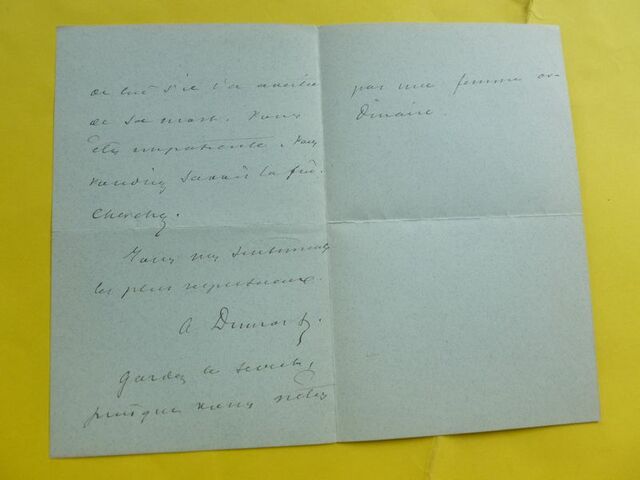 de lui s'il l'a
de sa mort. Vous
êtes impatiente. Vous
voudriez savoir la fin.
Cherchez.
Tous mes sentiments
les plus respectueux.
A Dumas f.
Gardez le secret,
puisque vous n'êtes
pas une femme or-
dinaire.